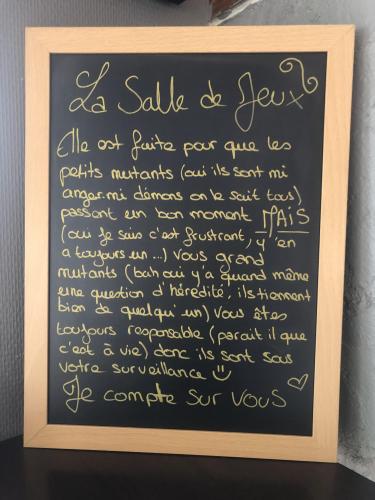 La Salle de Jeux
Elle est faite pour que les
petits mutants (oui ils sont mi
anges-mi démons on le sait tous)
passent un bon moment MAIS
(oui je sais c'est frustrant, y 'en
a toujours un ...) vous grand
mutants (bah oui y'a quand même
une question d'hérédité, ils tiennent
bien de quelqu'un) vous êtes
toujours responsable (parait il que
c'est à vie) donc ils sont sous
votre surveillance
Je compte sur vous